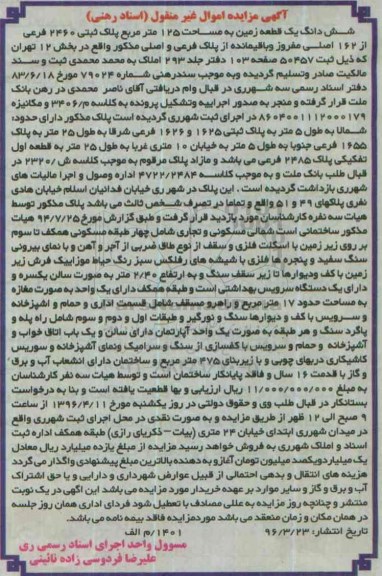 آگهی مزایده اموال غیر منقول (اسناد رهنی)
شش دانگ یک قطعه زمین به مساحت ۱۲۵ متر مربع پلاک ثبتی ۲۴۶۰ فرعی
از ۱۶۲ اصلی مفروز وباقیمانده از پلاک فرعی و اصلی مذکور واقع در بخش ۱۲ تهران
که ذیل ثبت ۵۰۴۵۷ صفحه ۱۰۳ دفتر جلد ۲۹۳ املاک به محمد محمدی ثبت و سند
مالکیت صادر وتسلیم گردیده وبه موجب سندرهنی شماره ۷۹۰۲۴ مورخ ۸۳/۶/۱۸
دفتر اسناد رسمی سه شهرری در قبال وام دریافتی آقای ناصر محمدی در رهن بانک
ملت قرار گرفته و منجر به صدور اجراییه وتشکیل پرونده به کلاسه ۳۴۰۶/م و مکانیزه
۸۶۰۴۰۰۱۱۱۲۰۰۰۱۷۹ در اجرای ثبت شهرری گردیده است پلاک مذکور دارای حدود:
شمالا به طول ۵ متر به پلاک ثبتی ۱۶۲۵ و ۱۶۲۶ فرعی شرقا به طول ۲۵ متر به پلاک
۱۶۵۵ فرعی جنوبا به طول ۵ متر به خیابان ۱۰ متری غربا به طول ۲۵ متر به قطعه اول
تفکیکی پلاک ۲۴۸۵ فرعی می باشد و مازاد پلاک مرقوم به موجب کلاسه ش/۲۳۲۰ در
قبال طلب بانک ملت و به موجب کلاسه ۴۷۲۲/۲۴۸۴ اداره وصول و اجرا مالیات های
شهرری بازداشت گردیده است. این پلاک در شهر ری خیابان فدائیان اسلام خیابان هادی
نفری پلاکهای ۴۹ و ۵۱ واقع و تماما در تصرف شخص ثالث می باشد پلاک مذکور توسط
هیات سه نفره کارشناسان مورد بازدید قرار گرفت و طبق گزارش مورخ ۹۴/۷/۲۵ هیات
مذکور ساختمانی است شمالی مسکونی و تجاری شامل چهار طبقه مسکونی همکف تا سوم
بر روی زیر زمین با اسکلت فلزی و سقف از نوع طاق ضربی از آجر و آهن و با نمای بیرونی
سنگ سفید و پنجره ها فلزی با شیشه های رفلکس سبز رنگ حیاط موزاییک فرش زیر
زمین با کف ودیوارها تا زیر سقف سنگ و به ارتفاع ۲/۴۰ متر به صورت سالن یکسره و
دارای یک دستگاه سرویس بهداشتی است و طبقه همکف دارای یک واحد به صورت مغازه
به مساحت حدود ۱۷ متر مربع و راهرو مسقف شامل قسمت اداری و حمام و اشپزخانه
و سرویس با کف و دیوارها سنگ و نورگیر و طبقات اول و دوم و سوم شامل راه پله و
پاگرد سنگ و هر طبقه به صورت یک واحد آپارتمان دارای سالن و یک باب اتاق خواب و
آشپزخانه و حمام و سرویس با کفسازی از سنگ و سرامیک ونمای آشپزخانه و سوریس
کاشیکاری دربهای چوبی و با زیربنای ۴۷۵ متر مربع و ساختمان دارای انشعاب آب و برق
و گاز با قدمت ۱۶ سال و فاقد پایانکار ساختمان است و توسط هیات سه نفر کارشناسان
به مبلغ ۱۱/۰۰۰/۰۰۰/۰۰۰ ریال ارزیابی و بها قطعیت یافته است و بنا به درخواست
بستانکار در قبال طلب وی و حقوق دولتی در روز یکشنبه مورخ ۱۳۹۶/۴/۱۱ از ساعت
۹ صبح الی ۱۲ ظهر از طریق مزایده و به صورت نقدی در محل اجرای ثبت شهرری واقع
در میدان شهرری ابتدای خیابان ۲۴ متری (بیات – ذکریای رازی) طبقه همکف اداره ثبت
اسناد و املاک شهرری به فروش خواهد رسید مزایده از مبلغ یازده میلیارد ریال معادل
یک میلیاردویکصد میلیون تومان آغازو به دهنده بالاترین مبلغ پیشنهادی واگذار می گردد
هزینه های انتقال و بدهی احتمالی از قبیل عوارض شهرداری و دارایی و یا حق اشتراک
آب و برق و گاز و سایر موارد بر عهده خریدار مورد مزایده می باشد این اگهی در یک نوبت
منتشر و چنانچه روز مزایده به عللی مصادف با تعطیل شود فردای اداری همان روز جلسه
در همان مکان و زمان منعقد می باشد موردمزایده فاقد بیمه نامه می باشد.
تاریخ انتشار: ۹۶/۳/۲۳ ۱۴۰۱/م الف
مسوول واحد اجرای اسناد رسمی ری
علیرضا فردوسی زاده نائینی